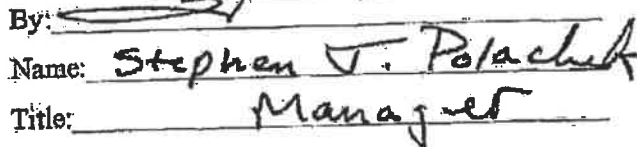 By:
Name: Stephen J. Polachek
Title: Manager